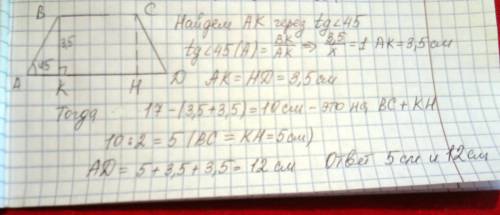 B C Найдем АК через tg<45
3,5 tg<45 (A) = BK/AK ⇒ 3,5/x = 1 АК=3,5см
45
A K H D AK = HD = 3,5см
Тогда 17 - (3,5+3,5) = 10см - это на BC + KH
10:2 = 5 (BC = KH = 5см)
AD = 5+3,5+3,5 = 12 см Ответ 5 см и 12см